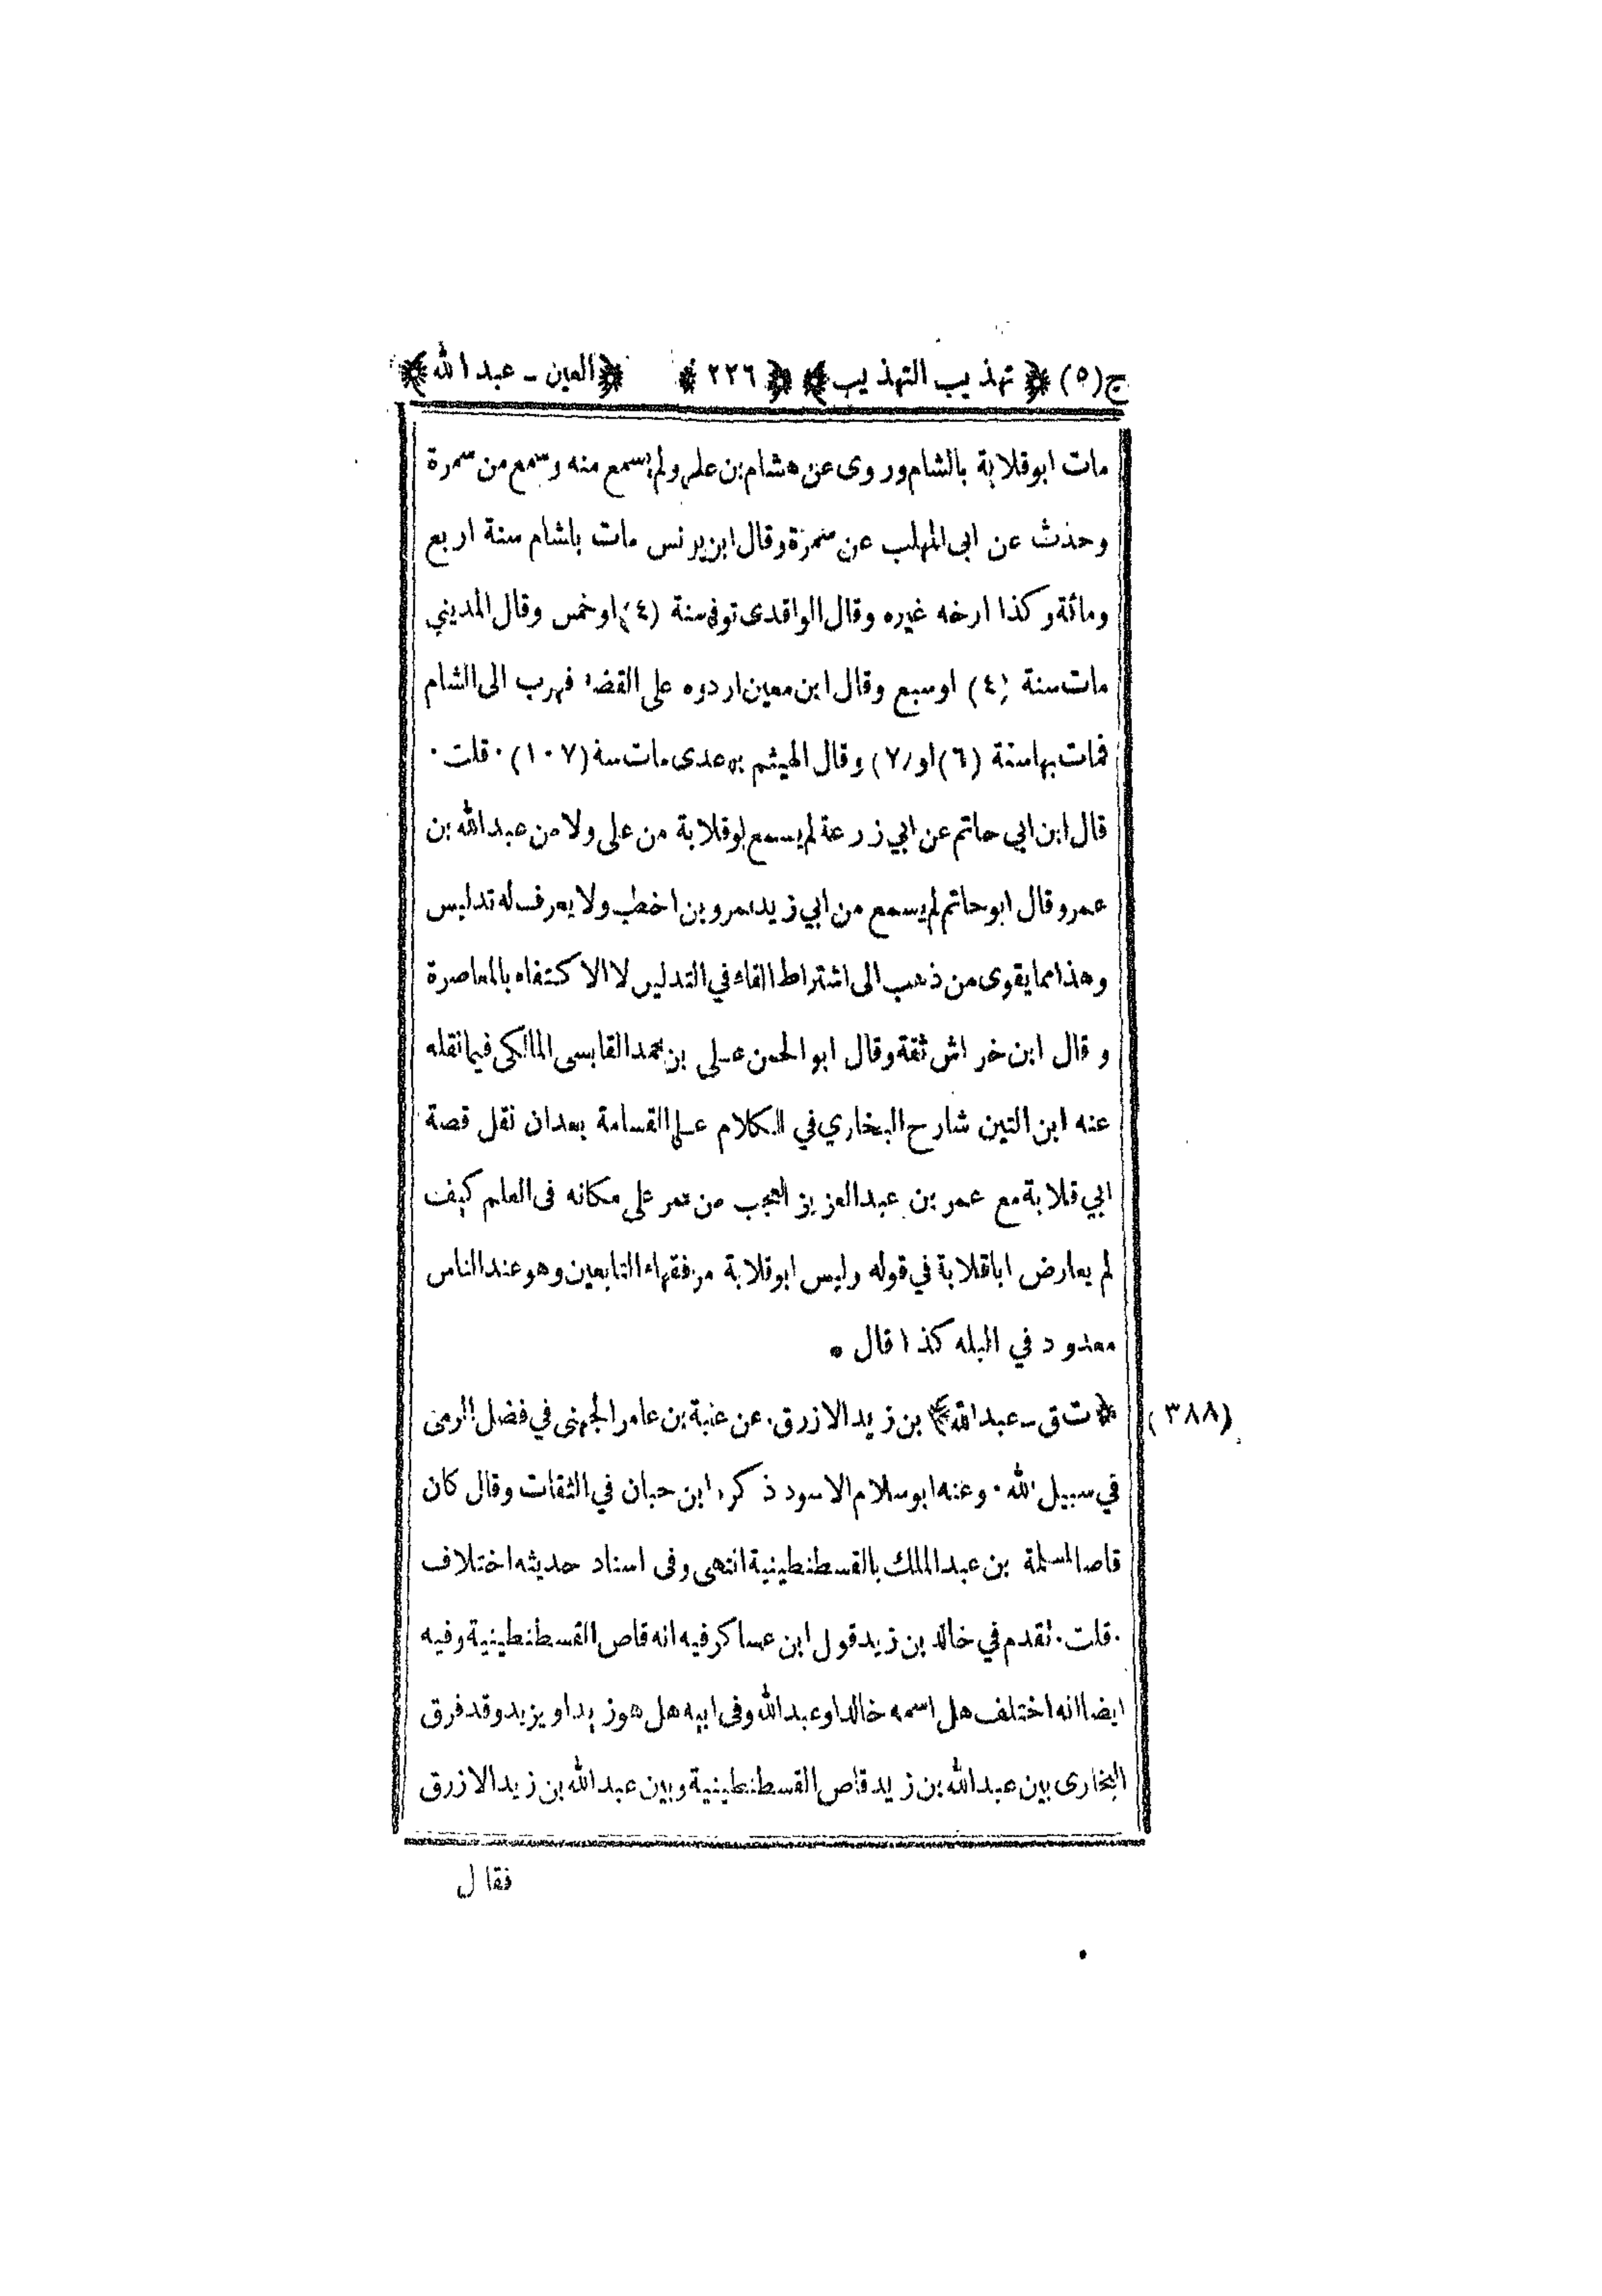 ج(٥) ﴿ تهذيب التهذيب ﴾ ﴿ ٢٢٦ ﴾ ﴿ العين - عبد الله ﴾
مات ابو قلابة بالشام وروى عن هشام بن عامر ولم يسمع منه وسمع من سمرة
وحدث عن ابى المهلب عن سمرة وقال ابن يونس مات بالشام سنة اربع
ومائة وكذا ارخه غيره وقال الواقدى توفى سنة (٤) او خمس وقال المديني
مات سنة (٤) او سبع وقال ابن معين ارادوه على القضاء فهرب الى الشام
فمات بها سنة (٦) او (٧) وقال الهيثم بن عدى مات سنة (١٠٧) ٠ قلت ٠
قال ابن ابي حاتم عن ابي زرعة لم يسمع ابو قلابة من على ولا من عبد الله بن
عمرو قال ابو حاتم لم يسمع من ابي زيد عمرو بن اخطب ولا يعرف له تدليس
وهذا مما يقوى من ذهب الى اشتراط اللقاء في التدليس لا الاكتفاء بالمعاصرة
وقال ابن خراش ثقة وقال ابو الحسن على بن محمد القابسى المالكى فيما نقله
عنه ابن التين شارح البخاري في الكلام على القسامة بعد ان نقل قصة
ابي قلابة مع عمر بن عبد العزيز العجب من عمر على مكانه فى العلم كيف
لم يعارض ابا قلابة في قوله وليس ابو قلابة من فقهاء التابعين وهو عند الناس
معدود في البله كذا قال •
(٣٨٨) ﴿ ت ق - عبد الله ﴾ بن زيد الازرق ٠ عن عقبة بن عامر الجهنى في فضل الرمى
في سبيل الله ٠ وعنه ابو سلام الاسود ذكره ابن حبان في الثقات وقال كان
قاصا لمسلمة بن عبد الملك بالقسطنطينية انتهى وفى اسناد حديثه اختلاف
٠ قلت ٠ تقدم في خالد بن زيد قول ابن عساكر فيه انه قاص القسطنطينية وفيه
ايضا انه اختلف هل اسمه خالد او عبد الله وفى ابيه هل هو زيد او يزيد وقد فرق
البخارى بين عبد الله بن زيد قاص القسطنطينية وبين عبد الله بن زيد الازرق
فقال